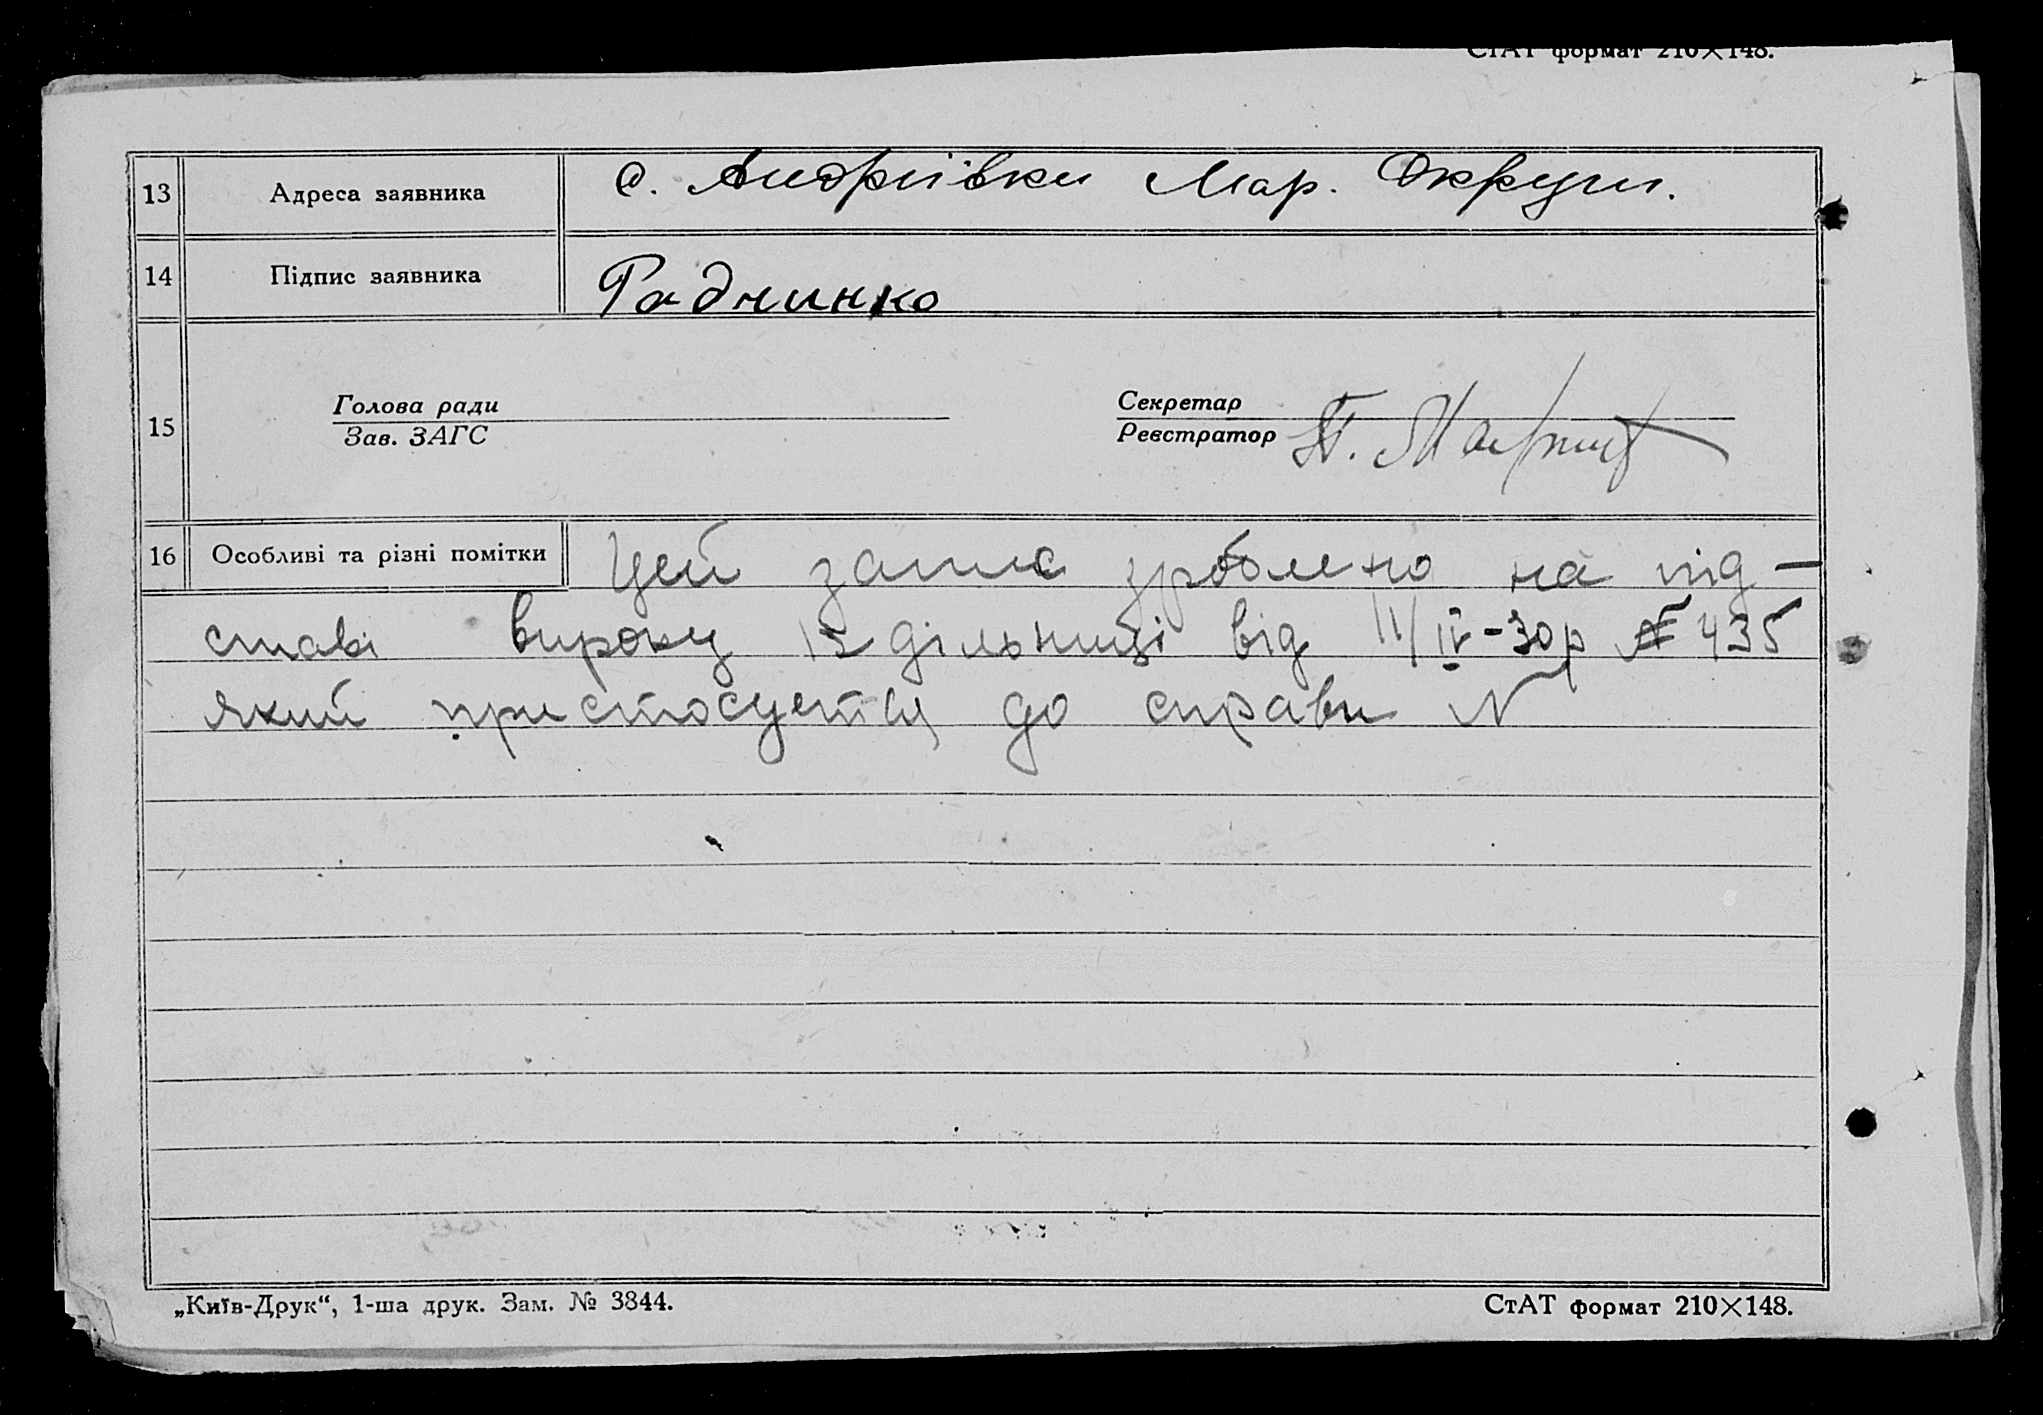 СтАТ формат 210×148.
13 Адреса заявника с. Андріївки Мар. Округи.
14 Підпис заявника Радчинко
15 Голова ради Секретар
Зав. ЗАГС Реєстратор П.
16 Особливі та різні помітки Цей запис зроблено на під-
ставі вироку 12 дільниці від 11/IV-30р № 435
який пристосується до справи N
„Київ-Друк“, 1-ша друк. Зам. № 3844. СтАТ формат 210×148.